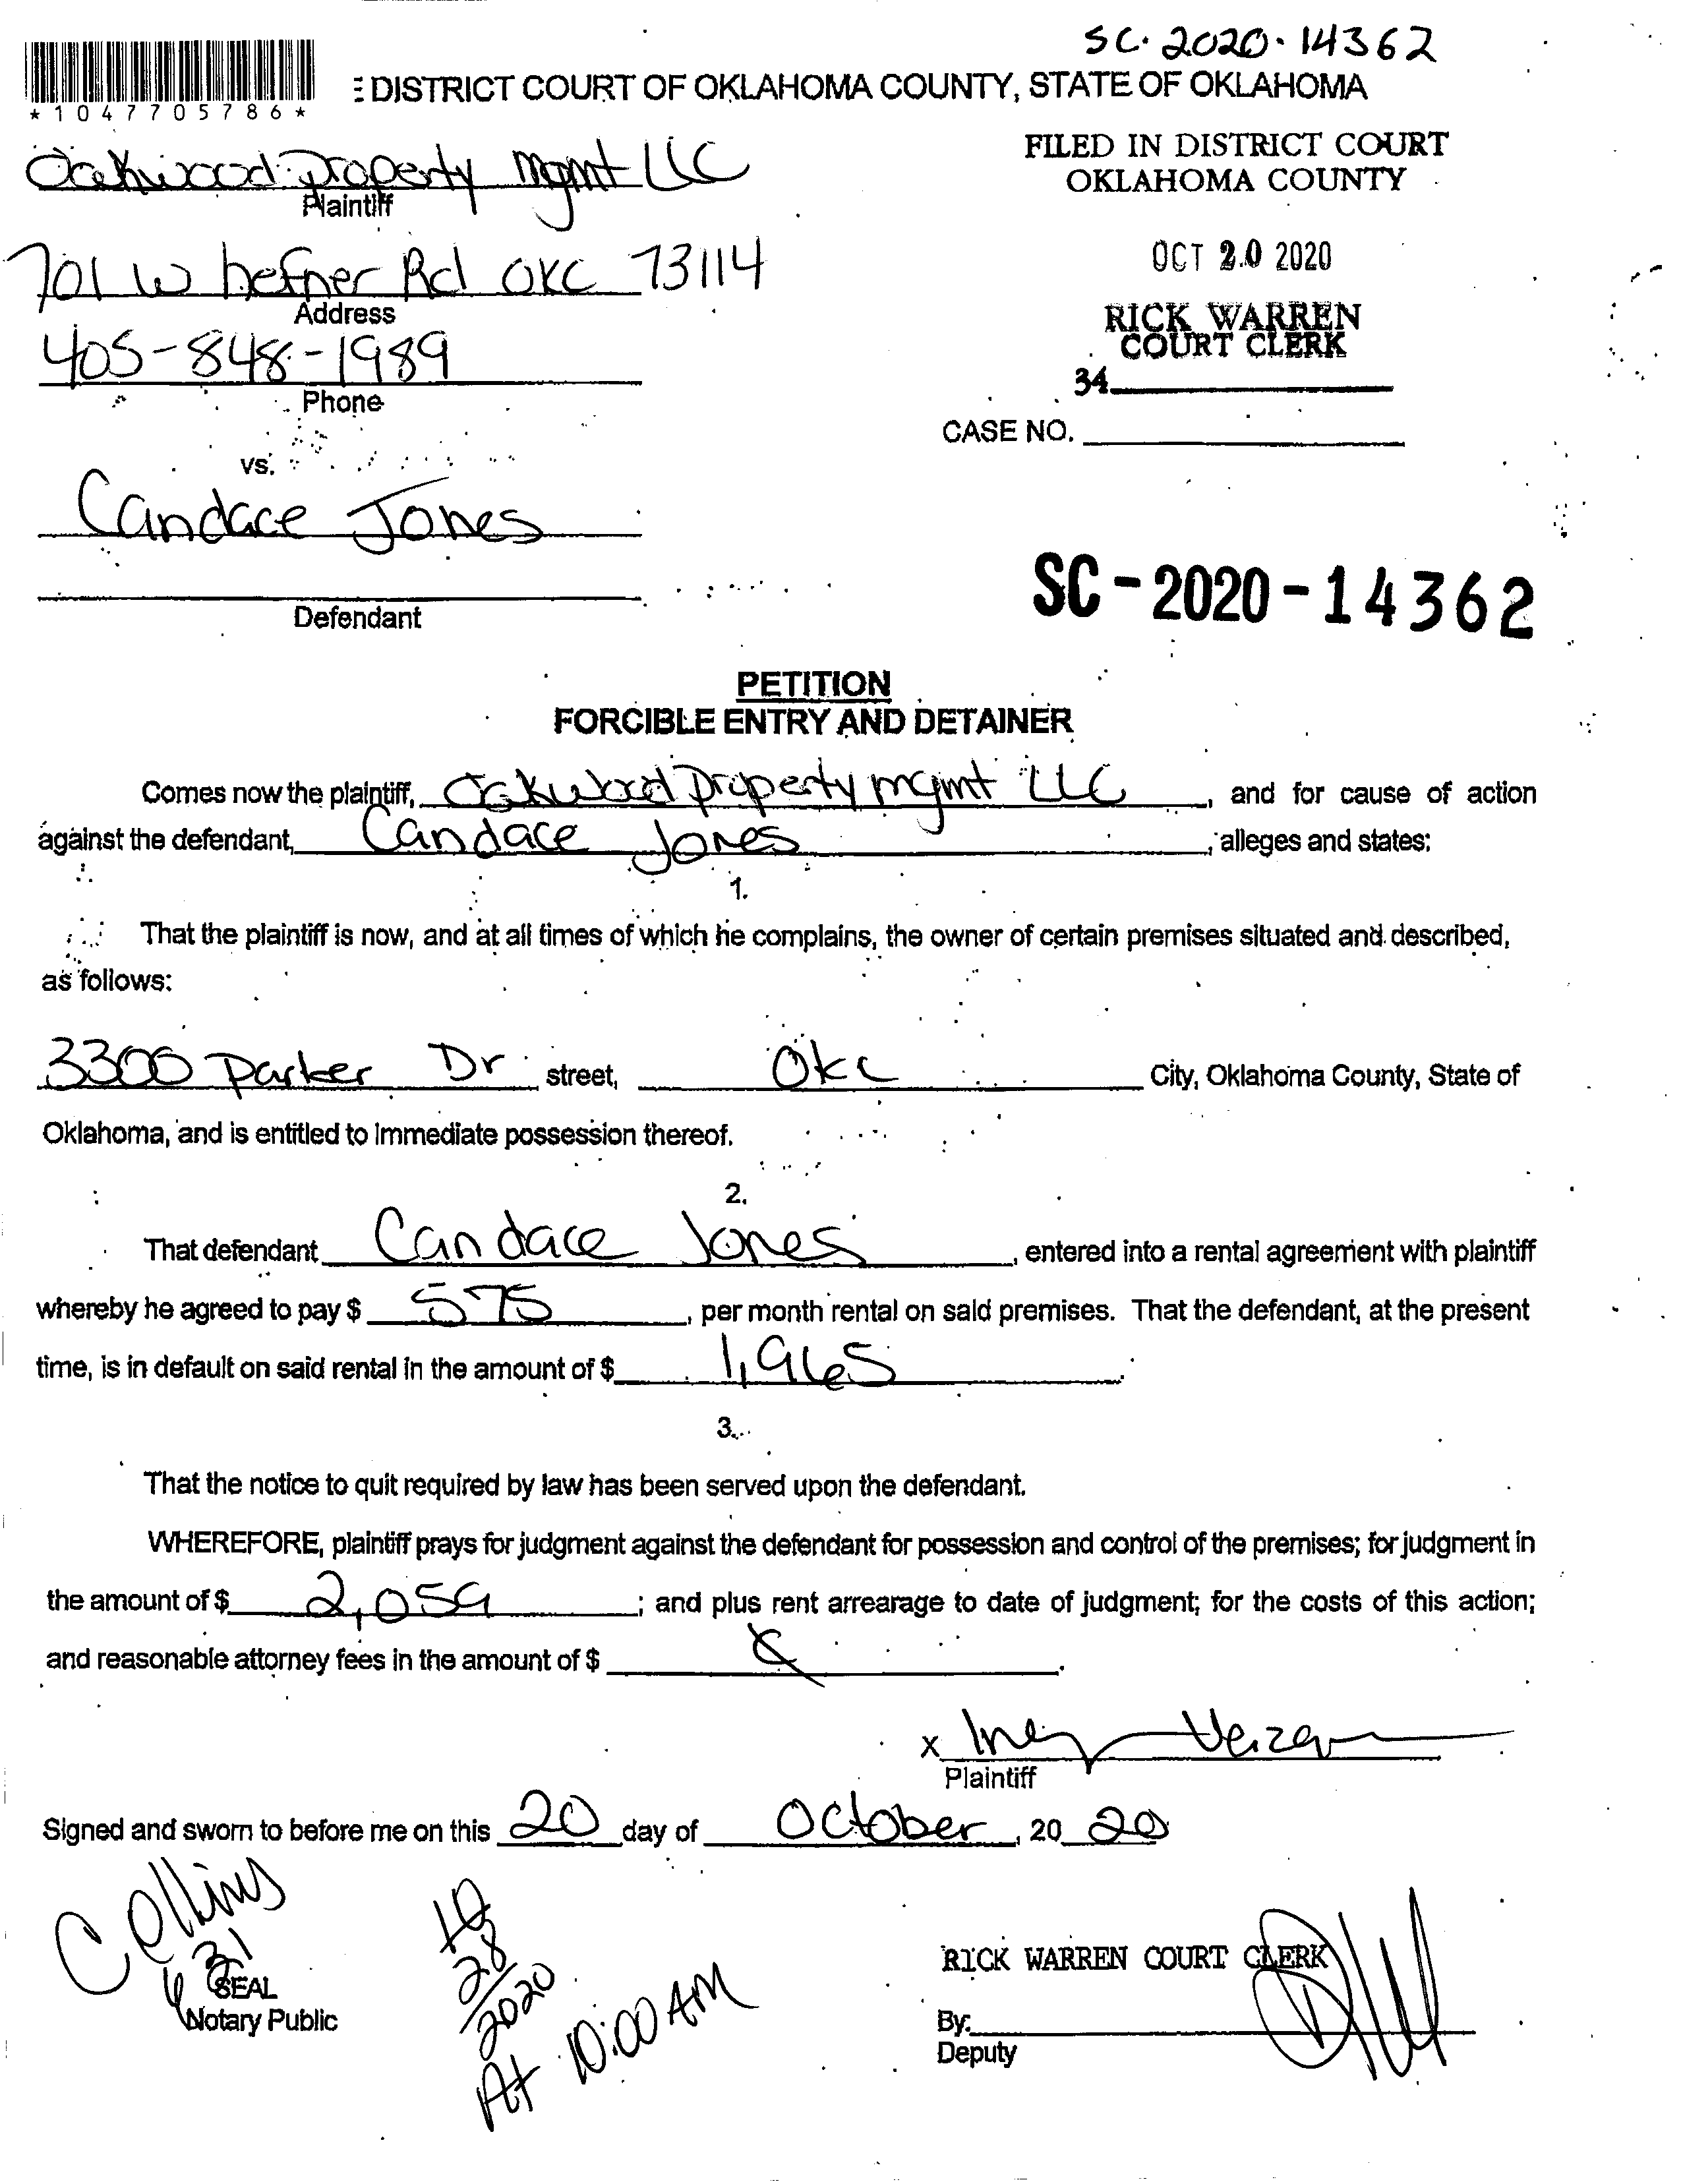 SC-2020-14362
*1047705786*
E DISTRICT COURT OF OKLAHOMA COUNTY, STATE OF OKLAHOMA
FILED IN DISTRICT COURT
OKLAHOMA COUNTY
Oakwood property mgmt LLC
Plaintiff
701 W hefner Rd OKC 73114
Address
OCT 20 2020
RICK WARREN
COURT CLERK
405-848-1989
Phone
34
CASE NO.
vs.
Candace Jones
Defendant
SC-2020-14362
PETITION
FORCIBLE ENTRY AND DETAINER
Comes now the plaintiff, Oakwood property mgmt LLC, and for cause of action
against the defendant, Candace Jones, alleges and states:
1.
That the plaintiff is now, and at all times of which he complains, the owner of certain premises situated and described,
as follows:
3300 parker Dr street, OKC City, Oklahoma County, State of
Oklahoma, and is entitled to immediate possession thereof.
2.
That defendant Candace Jones, entered into a rental agreement with plaintiff
whereby he agreed to pay $ 575, per month rental on said premises. That the defendant, at the present
time, is in default on said rental in the amount of $ 1,965.
3.
That the notice to quit required by law has been served upon the defendant.
WHEREFORE, plaintiff prays for judgment against the defendant for possession and control of the premises; for judgment in
the amount of $ 2,059; and plus rent arrearage to date of judgment; for the costs of this action;
and reasonable attorney fees in the amount of $
x
Plaintiff
Signed and sworn to before me on this 20 day of October, 20 20
Collins
SEAL
Notary Public
10
28
2020
At 10:00 AM
RICK WARREN COURT CLERK
By:
Deputy